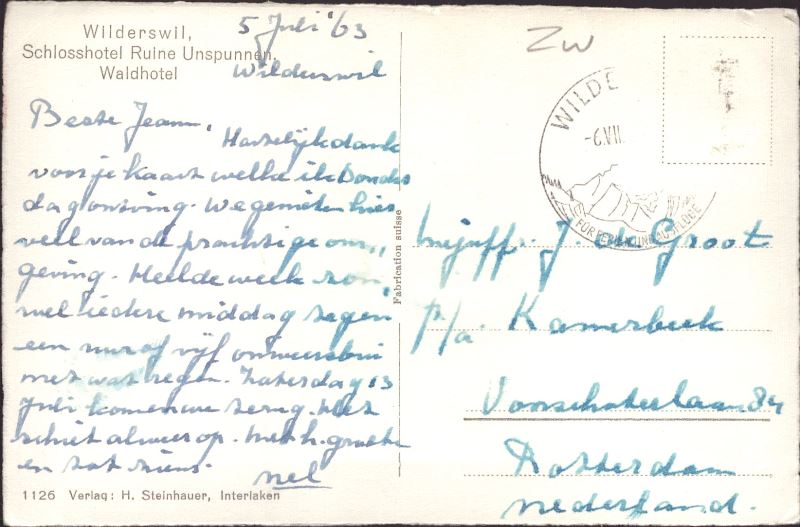 Wilderswil,
Schlosshotel Ruine Unspunnen,
Waldhotel
5 Juli '63
Wilderswil
Beste Jeann,
Hartelijk dank
voor je kaart welke ik Donder
dag ontving. We genieten hier
veel van de prachtige om,
geving. Heel de week zon,
wel iedere middag tegen
een uur of vijf onweersbui
met wat regen. Zaterdag 13
Juli komen we terug. Het
schiet al weer op. Met h. groeten
en tot ziens.
Nel
1126 Verlag: H. Steinhauer, Interlaken
Fabrication suisse
ZW
WILDE
-6.VII
Mejuff. J. de Groot
p/a. Kamerbeek
Voorschoterlaan 84
Rotterdam
Nederland.